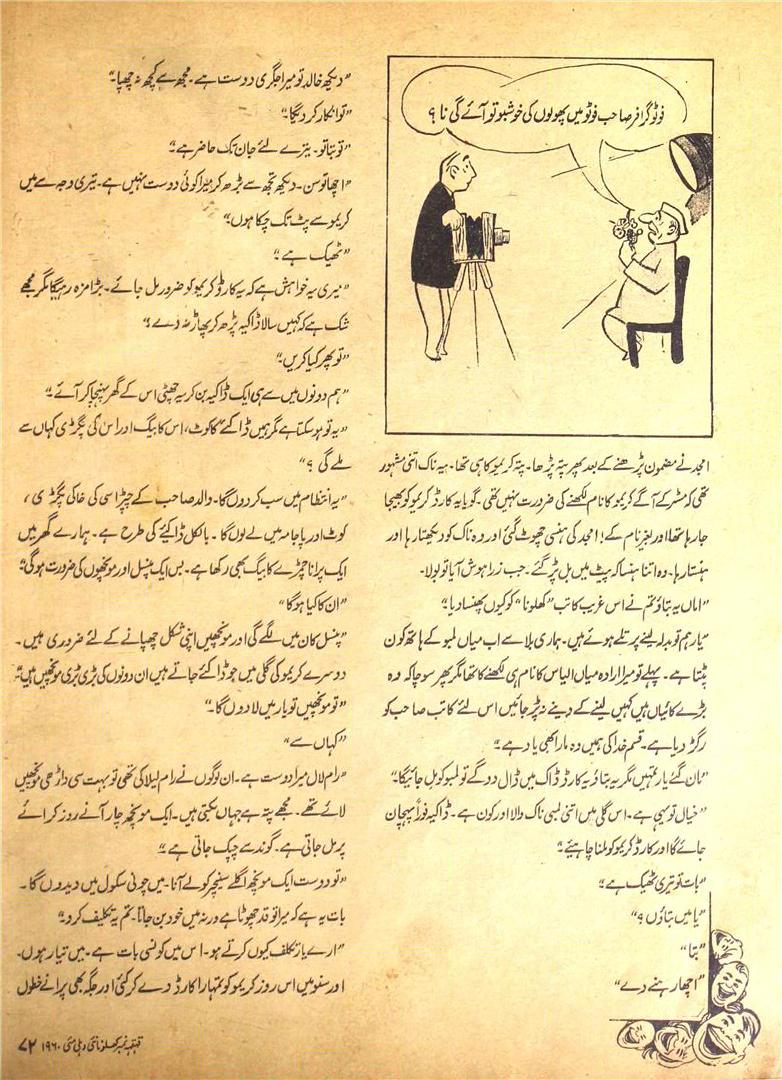 فوٹو گرافر صاحب فوٹو میں پھولوں کی خوشبو تو آئے گی نا ؟
امجد نے مضمون پڑھنے کے بعد پھر پتہ پڑھا۔ پتہ کریمو کا ہی تھا۔ یہ ناک اتنی مشہور
تھی کہ مسٹر کے آگے کریمو کا نام لکھنے کی ضرورت نہیں تھی۔ گویا یہ کارڈ کریمو کو بھیجا
جا رہا تھا اور بغیر نام کے! امجد کی ہنسی چھوٹ گئی اور وہ ناک کو دیکھتا رہا اور
ہنستا رہا۔ وہ اتنا ہنسا کہ پیٹ میں بل پڑ گئے۔ جب ذرا ہوش آیا تو بولا۔
"اماں یہ بتاؤ تم نے اس غریب کاتب "کھلونا" کو کیوں پھنسا دیا"؟
"یار ہم تو بدلہ لینے پر تلے ہوئے ہیں۔ ہماری بلا سے اب میاں لمبو کے ہاتھ کون
پٹتا ہے۔ پہلے تو میرا ارادہ میاں الیاس کا نام ہی لکھنے کا تھا مگر پھر سوچا کہ وہ
بڑے کائیاں ہیں کہیں لینے کے دینے نہ پڑ جائیں اس لئے کاتب صاحب کو
رگڑ دیا ہے۔ قسم خدا کی ہمیں وہ مار ابھی یاد ہے"۔
"مان گئے یار تمہیں مگر یہ بتاؤ یہ کارڈ ڈاک میں ڈال دو گے تو لمبو کو مل جائیگا"۔
"خیال تو یہی ہے۔ اس گلی میں اتنی لمبی ناک والا اور کون ہے۔ ڈاکیہ فوراً پہچان
جائے گا اور کارڈ کریمو کو ملنا چاہیئے"۔
"بات تو تیری ٹھیک ہے"۔
"یا میں بتاؤں ؟"
"بتا"
"اچھا رہنے دے"
"دیکھ خالد تو میرا جگری دوست ہے۔ مجھ سے کچھ نہ چھپا"۔
"تو انکار کر دیگا"۔
"تو بتا تو۔ تیرے لئے جان تک حاضر ہے"۔
"اچھا تو سن۔ دیکھ تجھ سے بڑھ کر میرا کوئی دوست نہیں ہے۔ تیری وجہ سے میں
کریمو سے پٹ تک چکا ہوں"۔
"ٹھیک ہے"۔
"میری یہ خواہش ہے کہ یہ کارڈ کریمو کو ضرور مل جائے۔ بڑا مزہ رہیگا مگر مجھے
شک ہے کہ کہیں سالا ڈاکیہ پڑھ کر پھاڑ نہ دے"!
"تو پھر کیا کریں"۔
"ہم دونوں میں سے ہی ایک ڈاکیہ بن کر یہ چھٹی اس کے گھر پہنچا کر آئے"۔
"یہ تو ہو سکتا ہے مگر ہمیں ڈاکئے کا کوٹ، اس کا بیگ اور اس کی پگڑی کہاں سے
ملے گی ؟"
"یہ انتظام میں سب کر دوں گا۔ والد صاحب کے چپڑاسی کی خاکی پگڑی ،
کوٹ اور پاجامہ میں لے لوں گا۔ بالکل ڈاکیئے کی طرح ہے۔ ہمارے گھر میں
ایک پرانا چمڑے کا بیگ بھی رکھا ہے۔ بس ایک پنسل اور مونچھوں کی ضرورت ہوگی"۔
"ان کا کیا ہوگا"
"پنسل کان میں لگے گی اور مونچھیں اپنی شکل چھپانے کے لئے ضروری ہیں۔
دوسرے کریمو کی گلی میں جو ڈاکئے جاتے ہیں ان دونوں کی بڑی بڑی مونچھیں ہیں"۔
"تو مونچھیں تو یار میں لا دوں گا"۔
"کہاں سے"
"رام لال میرا دوست ہے۔ ان لوگوں نے رام لیلا کی تھی تو بہت سی داڑھی مونچھیں
لائے تھے۔ مجھے پتہ ہے جہاں بکتی ہیں۔ ایک مونچھ چار آنے روز کرائے
پر مل جاتی ہے۔ گوند سے چپک جاتی ہے"۔
"تو دوست ایک مونچھ اگلے سنیچر کو لے آنا۔ میں چونی سکول میں دیدوں گا۔
بات یہ ہے کہ میرا تو قد چھوٹا ہے ورنہ میں خود بن جاتا۔ تم یہ تکلیف کر دو"۔
"ارے یار تکلف کیوں کرتے ہو۔ اس میں کونسی بات ہے۔ میں تیار ہوں۔
اور سنو میں اس روز کریمو کو تمہارا کارڈ دے کر کئی اور جگہ بھی پرانے خطوں
قہقہہ نمبر کھلونا نئی دہلی مئی ۱۹۶۰ ۷۲